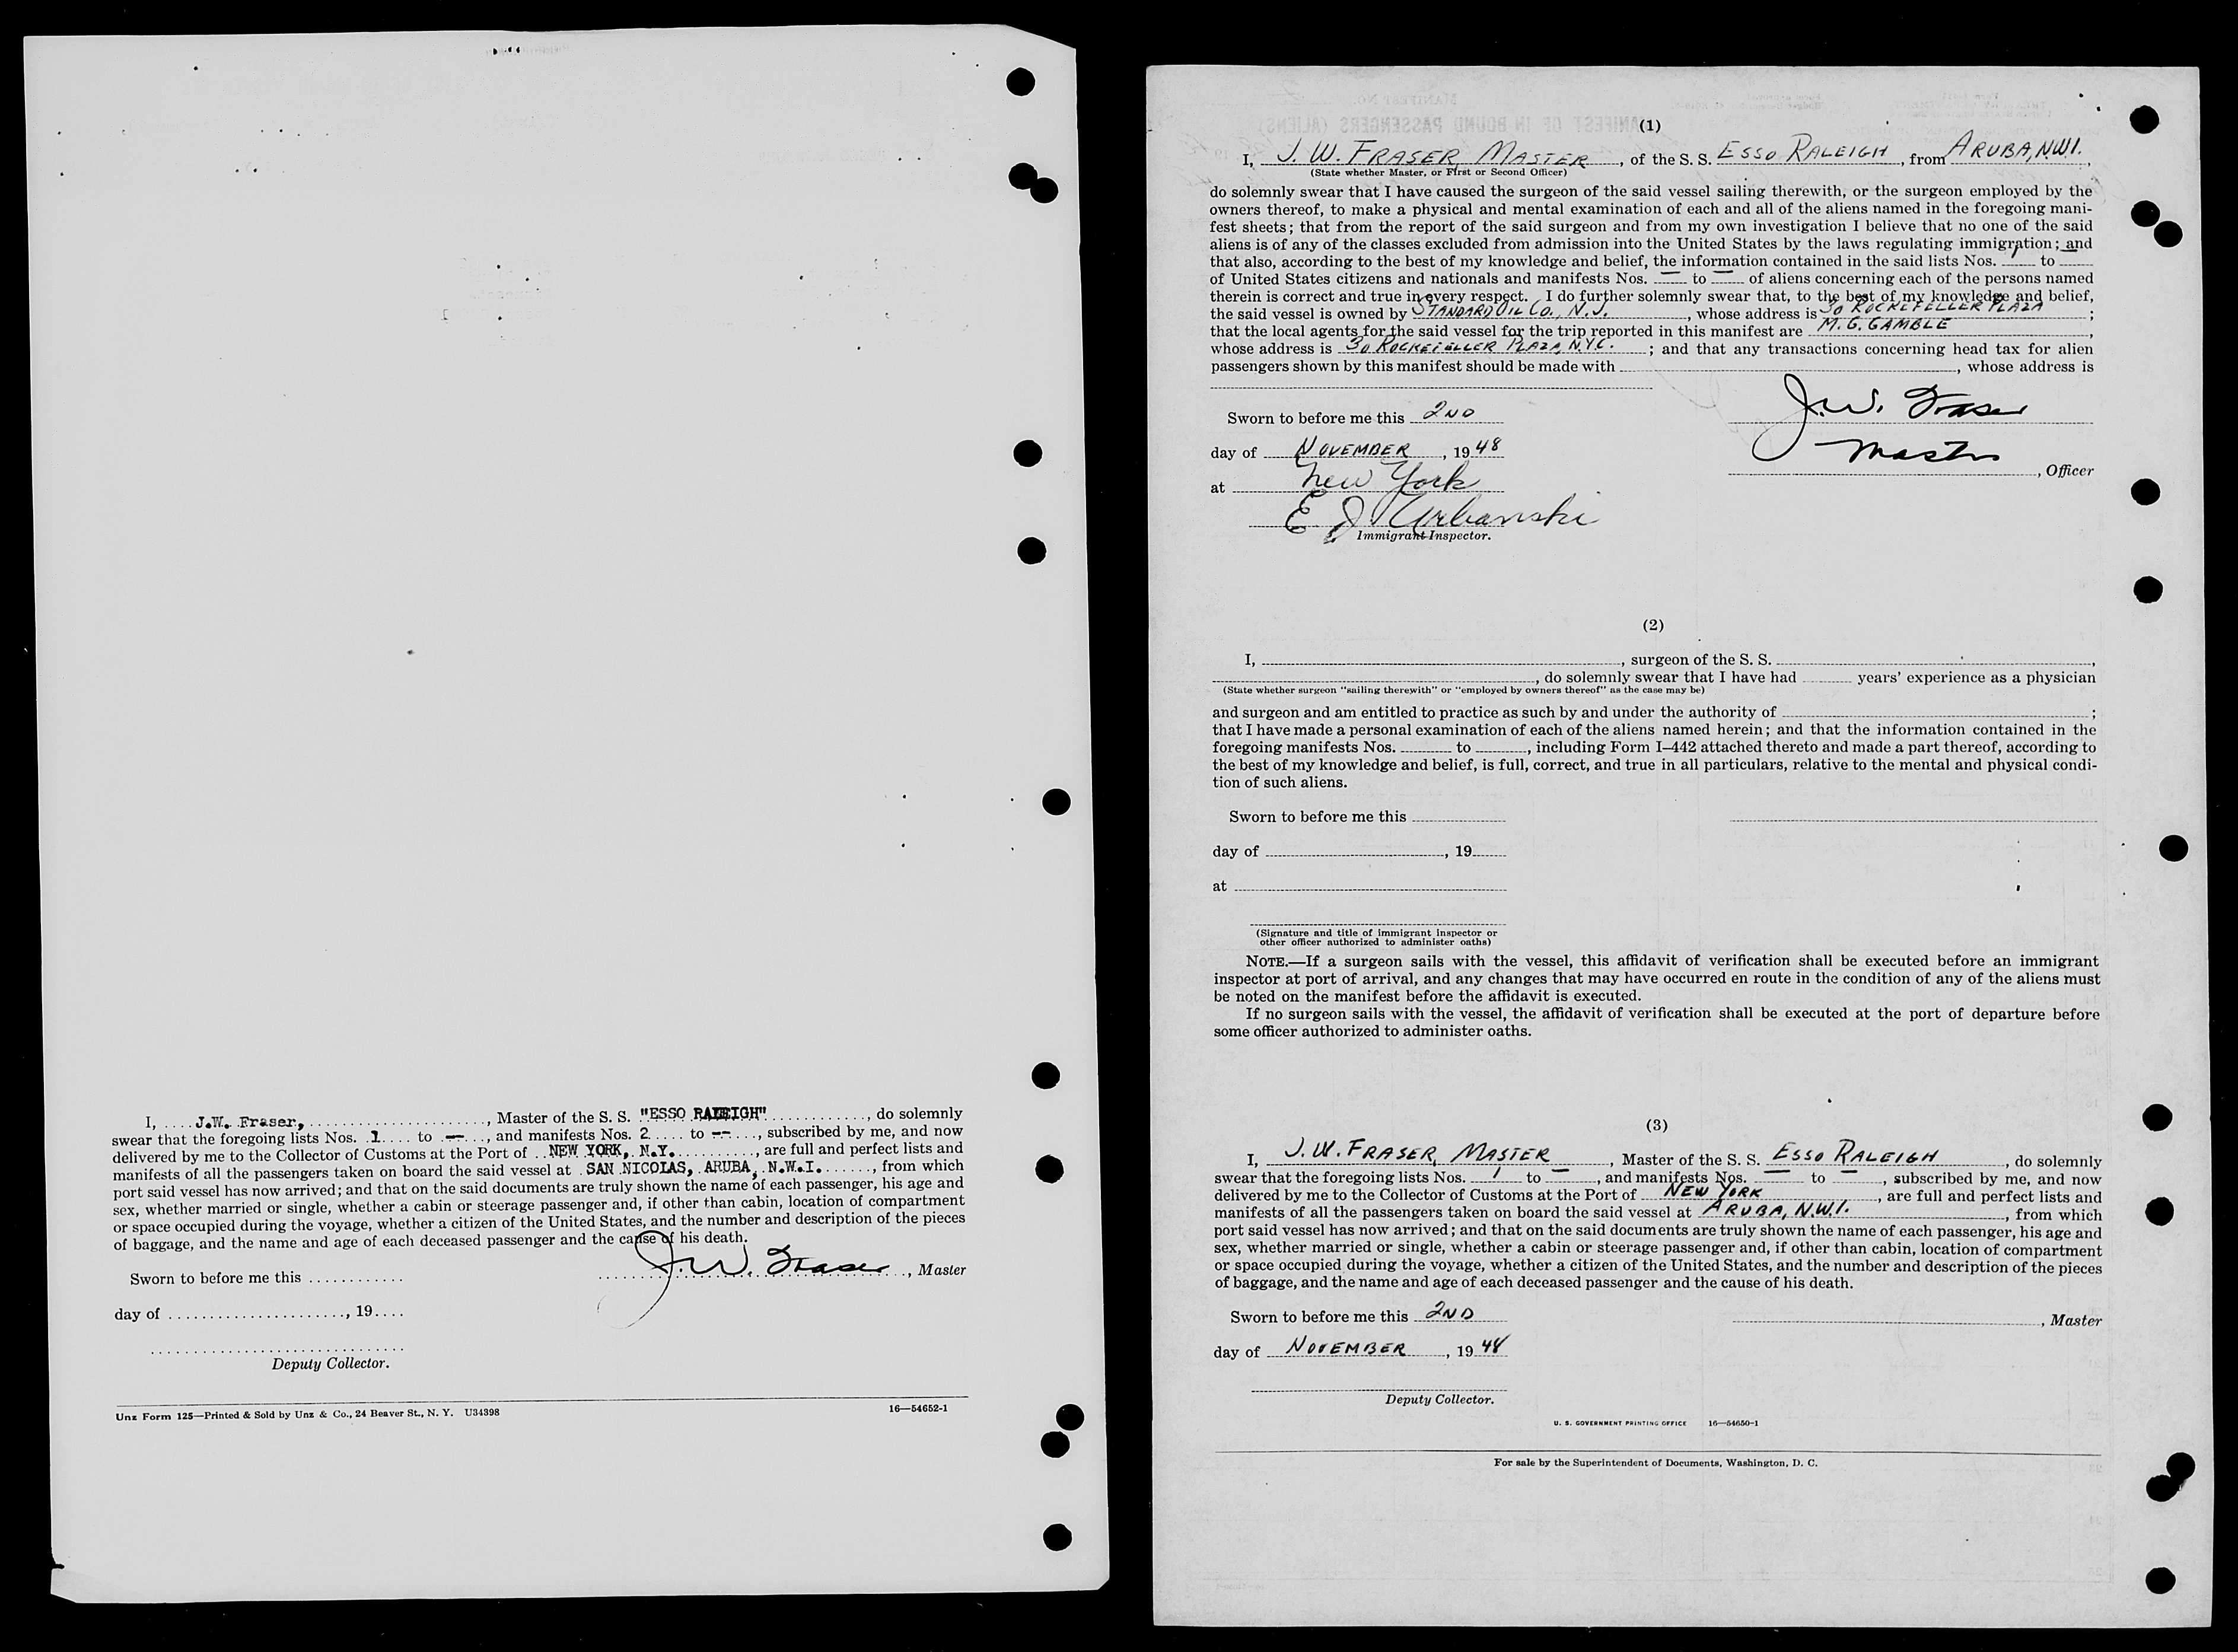 I, J.W. Fraser, Master of the S. S. "ESSO RALEIGH", do solemnly
swear that the foregoing lists Nos. 1 to --, and manifests Nos. 2 to --, subscribed by me, and now
delivered by me to the Collector of Customs at the Port of NEW YORK, N.Y., are full and perfect lists and
manifests of all the passengers taken on board the said vessel at SAN NICOLAS, ARUBA, N.W.I., from which
port said vessel has now arrived; and that on the said documents are truly shown the name of each passenger, his age and
sex, whether married or single, whether a cabin or steerage passenger and, if other than cabin, location of compartment
or space occupied during the voyage, whether a citizen of the United States, and the number and description of the pieces
of baggage, and the name and age of each deceased passenger and the cause of his death.
Sworn to before me this
J.W. Fraser, Master
day of , 19
Deputy Collector.
Unz Form 125—Printed & Sold by Unz & Co., 24 Beaver St., N. Y. U34398
16—54652-1
(1)
I, J. W. FRASER, MASTER, of the S. S. ESSO RALEIGH, from ARUBA, N.W.I.,
(State whether Master, or First or Second Officer)
do solemnly swear that I have caused the surgeon of the said vessel sailing therewith, or the surgeon employed by the
owners thereof, to make a physical and mental examination of each and all of the aliens named in the foregoing mani-
fest sheets; that from the report of the said surgeon and from my own investigation I believe that no one of the said
aliens is of any of the classes excluded from admission into the United States by the laws regulating immigration; and
that also, according to the best of my knowledge and belief, the information contained in the said lists Nos. 1 to
of United States citizens and nationals and manifests Nos. — to — of aliens concerning each of the persons named
therein is correct and true in every respect. I do further solemnly swear that, to the best of my knowledge and belief,
the said vessel is owned by STANDARD OIL CO., N.J., whose address is 30 ROCKEFELLER PLAZA;
that the local agents for the said vessel for the trip reported in this manifest are M. G. GAMBLE,
whose address is 30 ROCKEFELLER PLAZA, N.Y.C.; and that any transactions concerning head tax for alien
passengers shown by this manifest should be made with , whose address is
Sworn to before me this 2ND
J.W. Fraser
day of NOVEMBER, 1948
Master, Officer
at New York
E J Urbanski
Immigrant Inspector.
(2)
I, , surgeon of the S. S. ,
, do solemnly swear that I have had years' experience as a physician
(State whether surgeon "sailing therewith" or "employed by owners thereof" as the case may be)
and surgeon and am entitled to practice as such by and under the authority of ;
that I have made a personal examination of each of the aliens named herein; and that the information contained in the
foregoing manifests Nos. to , including Form I–442 attached thereto and made a part thereof, according to
the best of my knowledge and belief, is full, correct, and true in all particulars, relative to the mental and physical condi-
tion of such aliens.
Sworn to before me this
day of , 19
at
(Signature and title of immigrant inspector or
other officer authorized to administer oaths)
NOTE.—If a surgeon sails with the vessel, this affidavit of verification shall be executed before an immigrant
inspector at port of arrival, and any changes that may have occurred en route in the condition of any of the aliens must
be noted on the manifest before the affidavit is executed.
If no surgeon sails with the vessel, the affidavit of verification shall be executed at the port of departure before
some officer authorized to administer oaths.
(3)
I, J. W. FRASER, MASTER, Master of the S. S. ESSO RALEIGH, do solemnly
swear that the foregoing lists Nos. 1 to —, and manifests Nos. — to —, subscribed by me, and now
delivered by me to the Collector of Customs at the Port of NEW YORK, are full and perfect lists and
manifests of all the passengers taken on board the said vessel at ARUBA, N.W.I., from which
port said vessel has now arrived; and that on the said documents are truly shown the name of each passenger, his age and
sex, whether married or single, whether a cabin or steerage passenger and, if other than cabin, location of compartment
or space occupied during the voyage, whether a citizen of the United States, and the number and description of the pieces
of baggage, and the name and age of each deceased passenger and the cause of his death.
Sworn to before me this 2ND
, Master
day of NOVEMBER, 1948
Deputy Collector.
U. S. GOVERNMENT PRINTING OFFICE 16—54650-1
For sale by the Superintendent of Documents, Washington, D. C.